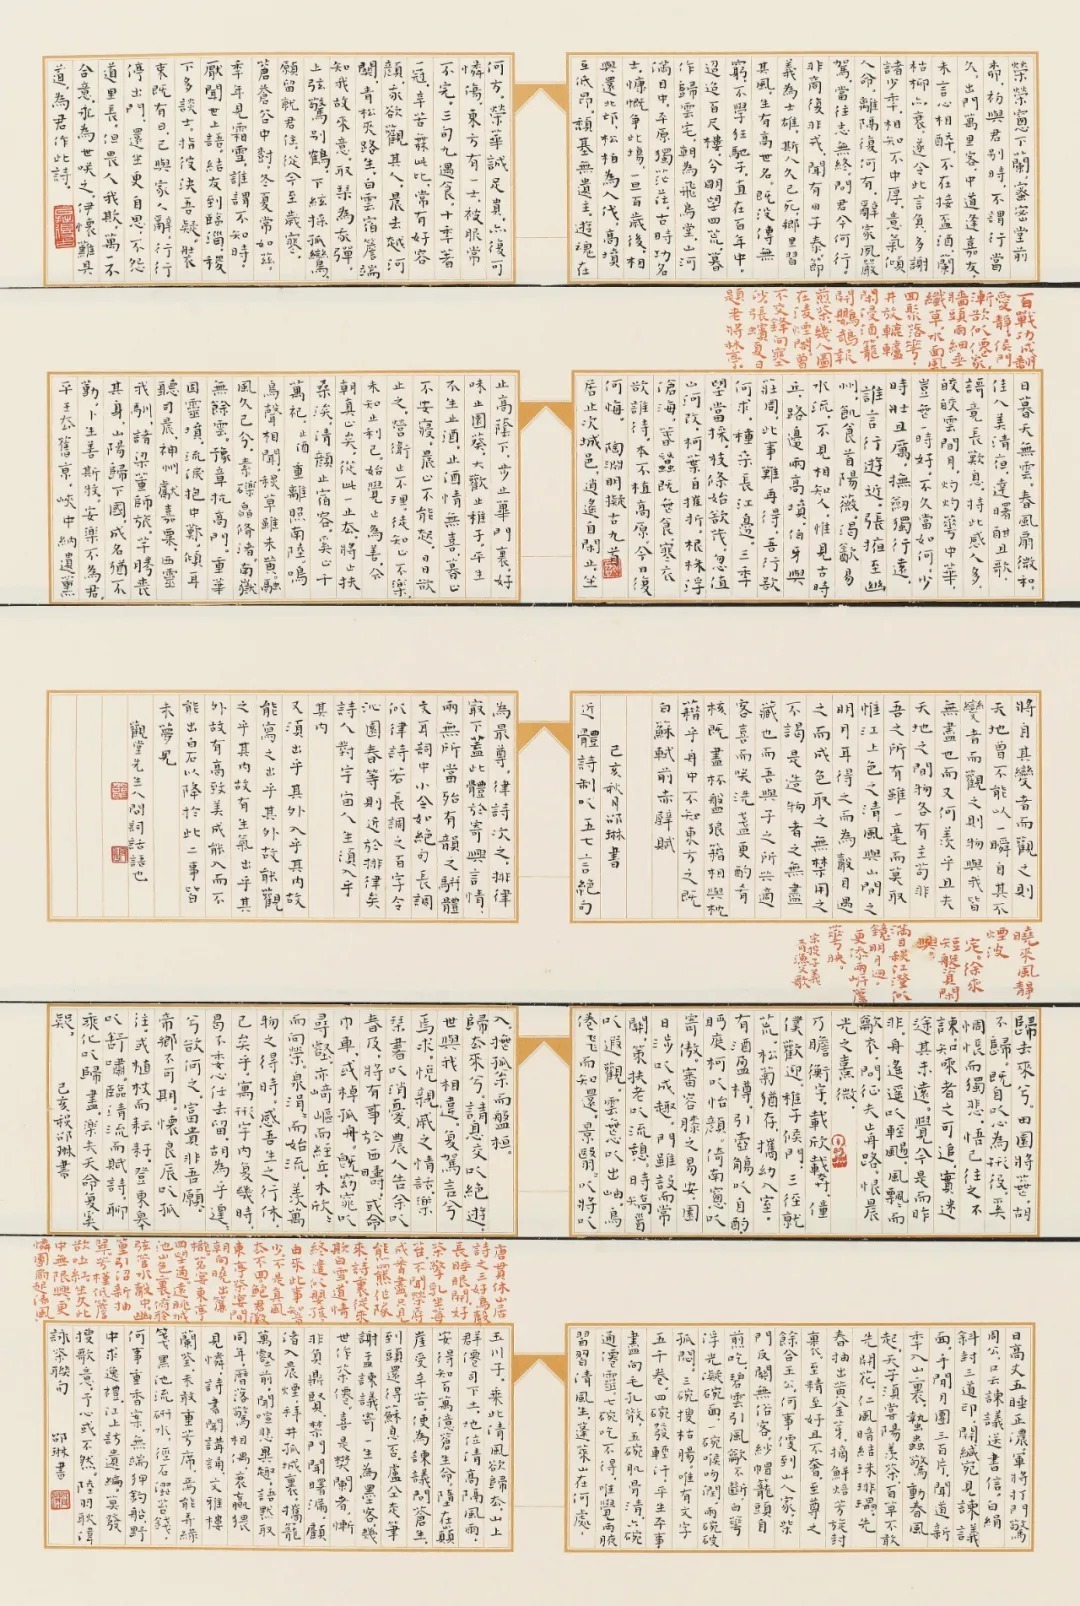 榮榮窗下蘭,密密堂前
柳,初與君別時,不謂行當
久,出門萬里客,中道逢嘉友,
未言心相醉,不在接盃酒,蘭
枯柳亦衰,遂令此言負,多謝
諸少年,相知不中厚,意氣傾
人命,離隔復何有,辭家夙嚴
駕,當往志無終,問君今何行,
非商復非戎,聞有田子泰,節
義為士雄,斯人久已死,鄉里習
其風,生有高世名,既沒傳無
窮,不學狂馳子,直在百年中,
迢迢百尺樓,分明望四荒,暮
作歸雲宅,朝為飛鳥堂,山河
滿目中,平原獨茫茫,古時功名
士,慷慨爭此場,一旦百歲後,相
與還北邙,松柏為人伐,高墳
互低昂,頹基無遺主,遊魂在
何方,榮華誠足貴,亦復可
憐傷,東方有一士,被服常
不完,三旬九遇食,十年著
一冠,辛苦無此比,常有好容
顏,我欲觀其人,晨去越河
關,青松夾路生,白雲宿簷端,
知我故來意,取琴為我彈,
上弦驚別鶴,下絃操孤鸞,
願留就君住,從今至歲寒,
蒼蒼谷中樹,冬夏常如茲,
年年見霜雪,誰謂不知時,
厭聞世上語,結友到臨淄,稷
下多談士,指彼決吾疑,裝
束既有日,已與家人辭,行行
停出門,還坐更自思,不怨
道里長,但畏人我欺,萬一不
合意,永為世咲之,伊懷難具
道,為君作此詩。
百戰功成翻
愛靜,侯門
漸欲似僊家,
牆頭雨細垂
纖草,水面風
回聚落花,
井放轆轤
閑浸酒,籠
開鸚鵡報
煎茶,幾人圖
在凌煙閣,曾
不交鋒向塞
沙。張蠙夏日
題老將林亭
日暮天無雲,春風扇微和,
佳人美清夜,達曙酣且歌,
歌竟長歎息,持此感人多,
皎皎雲間月,灼灼葉中華,
豈無一時好,不久當如何,少
時壯且厲,撫劍獨行遊,
誰言行遊近,張掖至幽
州,飢食首陽薇,渴飲易
水流,不見相知人,惟見古時
丘,路邊兩高墳,伯牙與
莊周,此士難再得,吾行欲
何求,種桑長江邊,三年
望當採,枝條始欲茂,忽值
山河改,柯葉自摧折,根株浮
滄海,春蠶既無食,寒衣
欲誰待,本不植高原,今日復
何悔。陶淵明擬古九首
居止次城邑,逍遙自閑止,坐
止高蔭下,步止蓽門裏,好
味止園葵,大歡止稚子,平生
不止酒,止酒情無喜,暮止
不安寢,晨止不能起,日日欲
止之,營衛止不理,徒知止不樂,
未知止利己,始覺止為善,今
朝真止矣,從此一止去,將止扶
桑涘,清顏止宿容,奚止千
萬祀。止酒 重離照南陸,鳴
鳥聲相聞,秋草雖未黃,融
風久已分,素礫皛脩渚,南嶽
無餘雲,豫章抗高門,重華
固靈墳,流淚抱中歎,傾耳
聽司晨,神州獻嘉粟,西靈
我馴,諸梁董師旅,芊勝喪
其身,山陽歸下國,成名猶不
勤,卜生善斯牧,安樂不為君,
平王去舊京,峽中納遺薰
將自其變者而觀之則
天地曾不能以一瞬自其不
變者而觀之則物與我皆
無盡也而又何羨乎且夫
天地之間物各有主苟非
吾之所有雖一毫而莫取
惟江上之清風與山間之
明月耳得之而為聲目遇
之而成色取之無禁用之
不竭是造物者之無盡
藏也而吾與子之所共適
客喜而咲洗盞更酌肴
核既盡杯盤狼籍相與枕
籍乎舟中不知東方之既
白蘇軾前赤壁賦
己亥秋月邵琳書
近體詩制以五七言絕句
為最尊,律詩次之,排律
最下蓋此體於寄興言情,
兩無所當殆有韻之駢體
文耳詞中小令如絕句長調
似律詩若長調之百字令
沁園春等則近於排律矣
詩人對宇宙人生須入乎
其內
又須出乎其外入乎其內故
能寫之出乎其外故能觀
之乎其內故有生氣出乎其
外故有高致美成能入而不
能出白石以降於此二事皆
未夢見
觀堂先生人間詞話語也
曉來風靜
煙波
定。徐來
短艇資閑
興。
滿目秋江澄似
鏡。明月迥。
更添兩岸蘆
花映。
宗投子義
青漁父歌
歸去來兮。田園將蕪。胡
不歸。既自以心為形役。奚
惆悵而獨悲。悟已往之不
諫。知來者之可追。實迷
途其未遠。覺今是而昨
非。舟遙遙以輕颺。風飄飄而
吹衣。問征夫以前路。恨晨
光之熹微。
乃瞻衡宇。載欣載奔。僮
僕歡迎。稚子候門。三徑就
荒。松菊猶存。攜幼入室。
有酒盈樽。引壺觴以自酌。
眄庭柯以怡顏。倚南窗以
寄傲。審容膝之易安。園
日涉以成趣。門雖設而常
關。策扶老以流憩。時矯首
以遐觀。雲無心以出岫。鳥
倦飛而知還。景翳以將以
入。撫孤松而盤桓。
歸去來兮。請息交以絕遊。
世與我相違。復駕言兮
焉求。悅親戚之情話。樂
琴書以消憂。農人告余以
春及。將有事於西疇。或命
巾車。或棹孤舟。既窈窕以
尋壑。亦崎嶇而經丘。木欣欣
而向榮。泉涓涓而始流。羨萬
物之得時。感吾生之行休。
已矣乎。寓形宇內復幾時。
曷不委心任去留。胡為乎遑遑
兮欲何之。富貴非吾願。
帝鄉不可期。懷良辰以孤
往。或植杖而耘耔。登東皋
以舒嘯。臨清流而賦詩。聊
乘化以歸盡。樂夫天命復奚
疑。 己亥秋邵琳書
唐貫休山居
詩之三好鳥聲
長睡眼開好
茶擎乳坐莓
苔不聞榮辱
成番盡只見
熊羆作隊
來詩裏從來
欺白雪道情
終遣似嬰孩
由來此事知音
少,不是真風
去不回。鮑君徽
東亭茶宴閑
朝向曉出簾
櫳,茗宴東亭
四望通,遠眺城
池山色裏,俯聆
弦管水聲中,幽
篁引沼新抽
翠,芳槿低簷
欲吐紅,坐久此
中無限興,更
憐團扇起清風
日高丈五睡正濃,軍將打門驚
周公,口云諫議送書信,白絹
斜封三道印,開緘宛見諫議
面,手閱月團三百片,聞道新
年入山裏,蟄蟲驚動春風
起,天子須嘗陽羨茶,百草不敢
先開花,仁風暗結珠琲瓃,先
春抽出黃金芽,摘鮮焙芳旋封
裹,至精至好且不奢,至尊之
餘合王公,何事便到山人家,柴
門反關無俗客,紗帽籠頭自
煎吃,碧雲引風吹不斷,白花
浮光凝碗面,一碗喉吻潤,兩碗破
孤悶,三碗搜枯腸,唯有文字
五千卷,四碗發輕汗,平生不平事
盡向毛孔散,五碗肌骨清,六碗
通僊靈,七碗吃不得,唯覺兩腋
習習清風生,蓬萊山在何處,
玉川子,乘此清風欲歸去,山上
群僊司下土,地位清高隔風雨,
安得知百萬億蒼生命,墮在巔
崖受辛苦,便為諫議問蒼生,
到頭還得蘇息否。盧仝走筆
謝孟諫議寄 一生為墨客,幾
世作茶僊,喜是樊闌者,慚
非負鼎賢,禁門聞曙漏,顧
渚入晨煙,拜井孤城裏,攜籠
萬壑前,閑喧悲異趣,語默取
同年,曆落驚相偶,衰羸猥
見憐,詩書聞講誦,文雅樓
蘭筌,未敢重芳席,焉能弄綠
箋,黑池流研水,徑石澀苔錢,
何事重香案,無端狎釣船,野
中求逸禮,江上訪遺編,莫發
搜歌意,予心或不然。陸羽耿湋
詠茶聯句 邵琳書